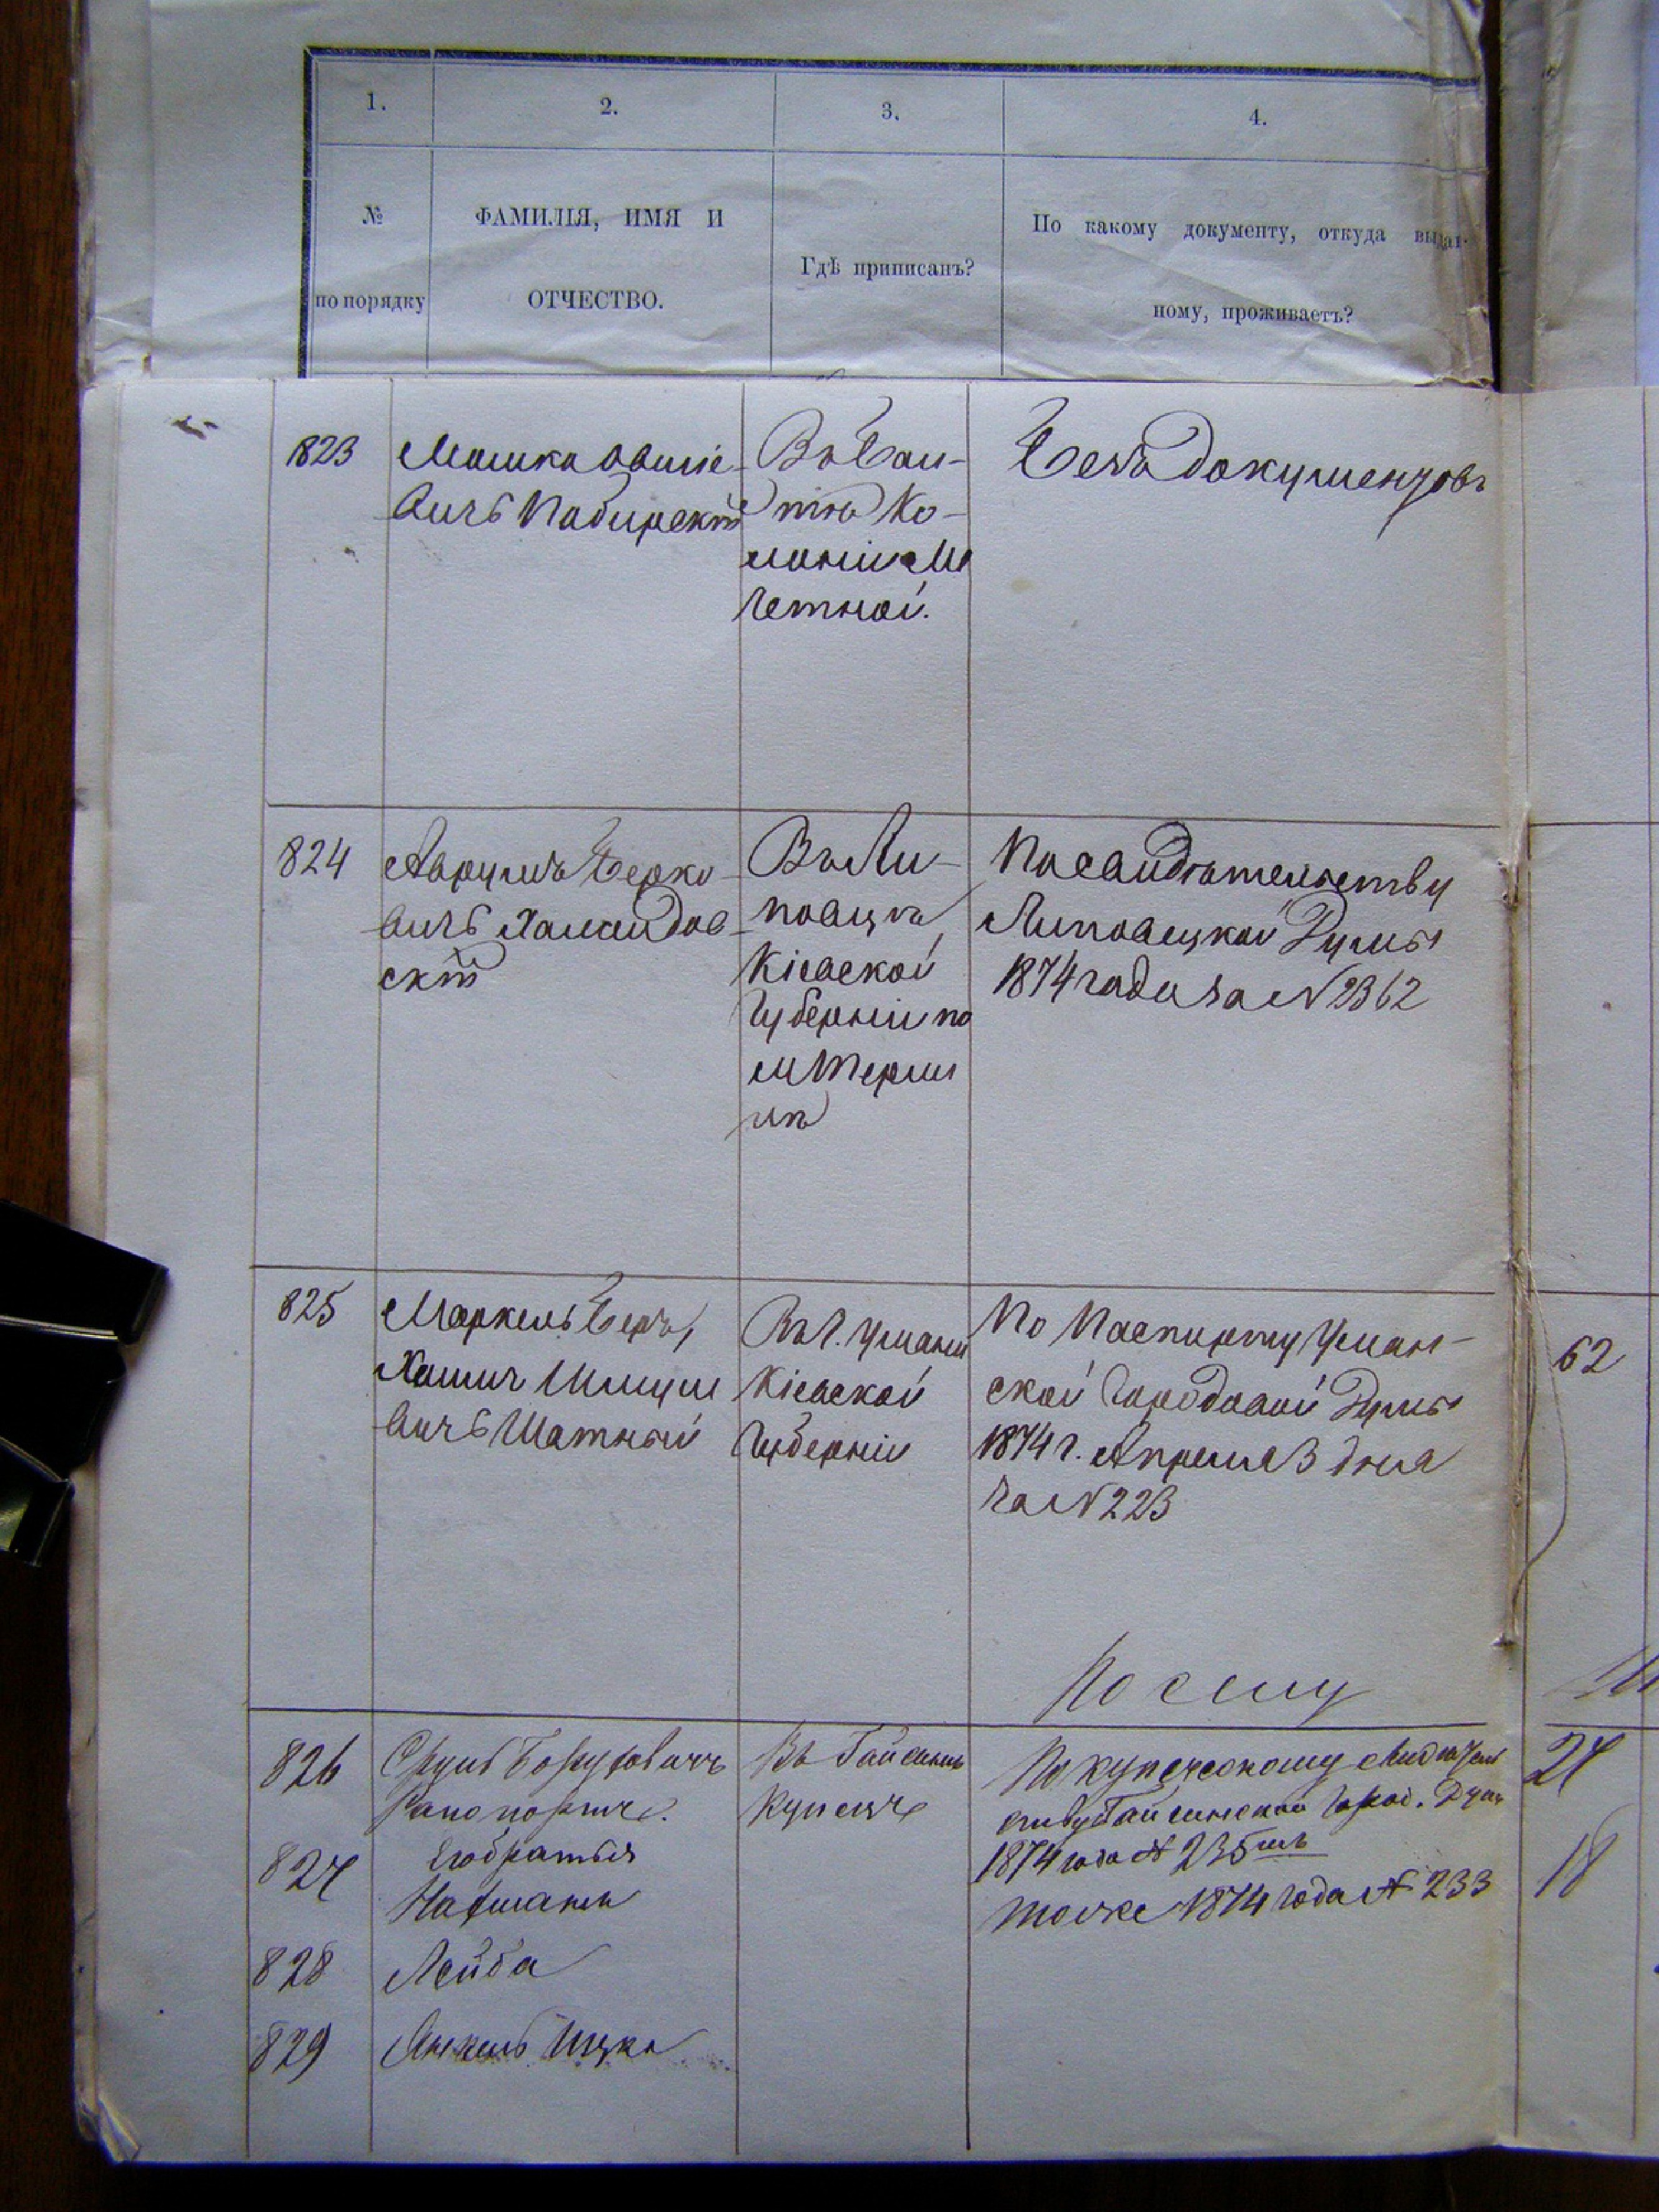 1.
2.
3.
4.
№
по порядку
ФАМИЛІЯ, ИМЯ И
ОТЧЕСТВО.
Гдѣ приписанъ?
По какому документу, откуда выдан-
ному, проживаетъ?
823
Мошко Овшіе-
вичъ
Ко-
лоніи Ме
четной.
Безъ документовъ
824
Аврумъ Берко-
вичъ
скій
Въ Ли-
повцѣ
Кіевской
Губерніи по
м
По свидѣтельству
Липовецкой Думы
1874 года за N 2362
825
Маркель Беръ,
Хаимъ Шмуле
вичъ Шатный
Въ г. Умани
Кіевской
Губерніи
По Паспорту Уман-
ской Городовой Думы
1874 г. Апреля 3 дня
за N 223
62
По сему
826
Сруль Боруховичъ
Рапопортъ.
Въ Гайсинѣ
Купецъ
По купеческому свидѣтель
ству Гайсинской город. Думы
1874 года № 235
27
827
Его братья
Нахманъ
тоже 1874 года № 233
18
828
Лейба
829
Янкель Ицко